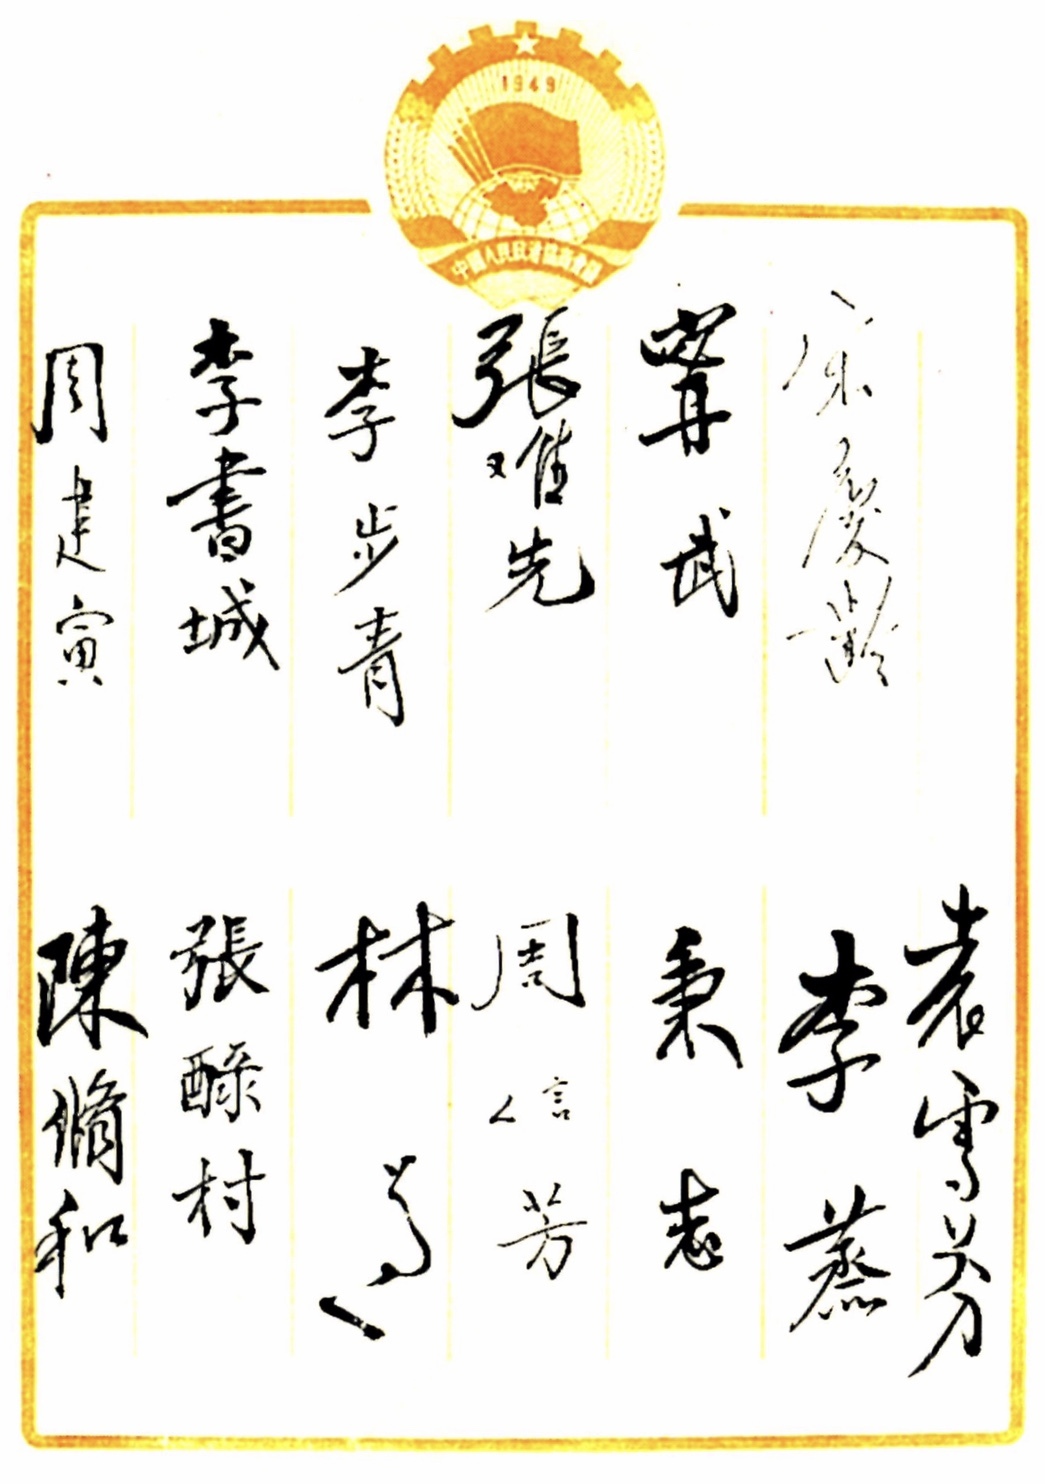 1949
中國人民政治協商會議
宋慶齡
甯武
張难先
李步青
李書城
周建寅
袁雪芬
李蒸
秉志
周信芳
林遵
張醁村
陳脩和